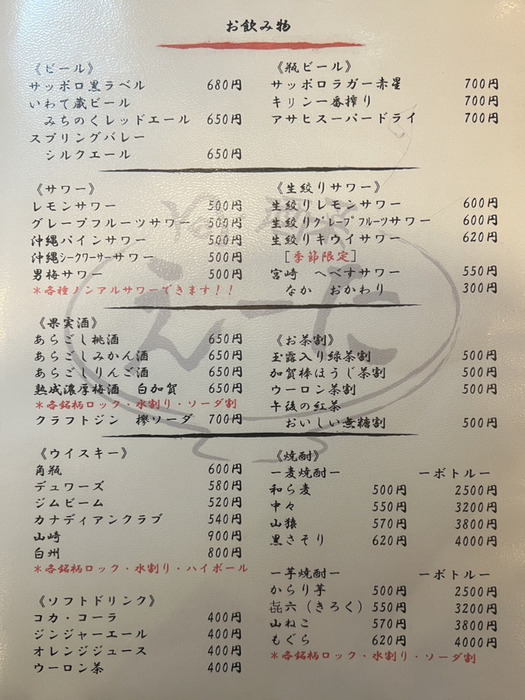 お飲み物
《ビール》
サッポロ黒ラベル 680円
いわて蔵ビール
みちのくレッドエール 650円
スプリングバレー
シルクエール 650円
《瓶ビール》
サッポロラガー赤星 700円
キリン一番搾り 700円
アサヒスーパードライ 700円
《サワー》
レモンサワー 500円
グレープフルーツサワー 500円
沖縄パインサワー 500円
沖縄シークワーサーサワー 500円
男梅サワー 500円
＊各種ノンアルサワーできます！！
《生絞りサワー》
生絞りレモンサワー 600円
生絞りグレープフルーツサワー 600円
生絞りキウイサワー 620円
［季節限定］
宮崎 へべすサワー 550円
なか おかわり 300円
《果実酒》
あらごし桃酒 650円
あらごしみかん酒 650円
あらごしりんご酒 650円
熟成濃厚梅酒 白加賀 650円
＊各銘柄ロック・水割り・ソーダ割
クラフトジン 欅ソーダ 700円
《お茶割》
玉露入り緑茶割 500円
加賀棒ほうじ茶割 500円
ウーロン茶割 500円
午後の紅茶
おいしい無糖割 500円
《ウイスキー》
角瓶 600円
デュワーズ 580円
ジムビーム 520円
カナディアンクラブ 540円
山崎 900円
白州 800円
＊各銘柄ロック・水割り・ハイボール
《ソフトドリンク》
コカ・コーラ 400円
ジンジャーエール 400円
オレンジジュース 400円
ウーロン茶 400円
《焼酎》
ー麦焼酎ー ーボトルー
和ら麦 500円 2500円
中々 550円 3200円
山猿 570円 3800円
黒さそり 620円 4000円
ー芋焼酎ー ーボトルー
からり芋 500円 2500円
㐂六（きろく） 550円 3200円
山ねこ 570円 3800円
もぐら 620円 4000円
＊各銘柄ロック・水割り・ソーダ割